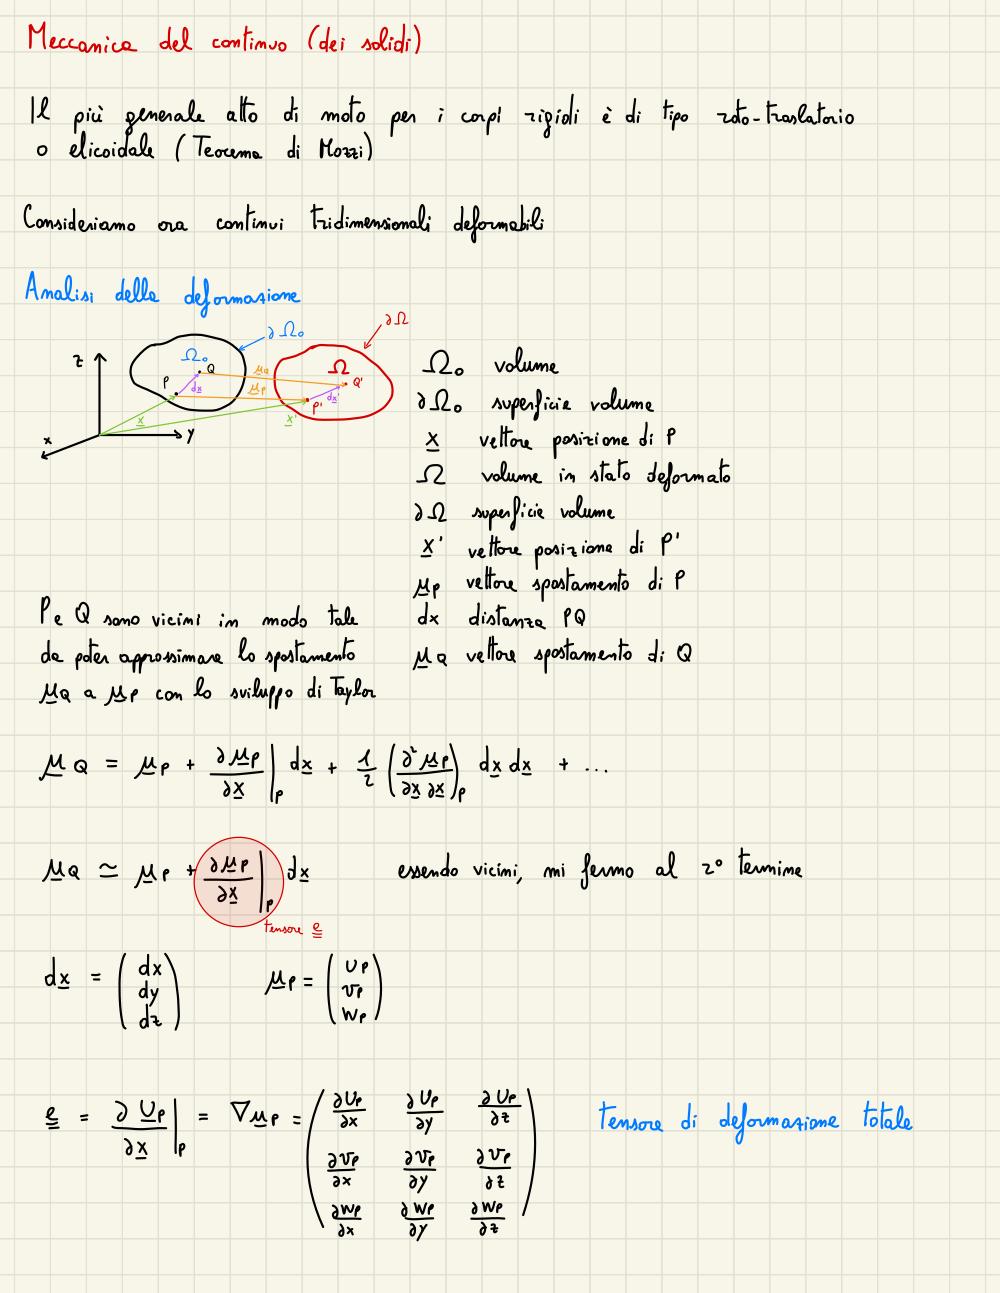 Meccanica del continuo (dei solidi)
Il più generale atto di moto per i corpi rigidi è di tipo roto-traslatorio
o elicoidale (Teorema di Mozzi)
Consideriamo ora continui tridimensionali deformabili
Analisi della deformazione
∂Ω₀ ∂Ω
z Ω₀ Q u̲Q Ω Q'
P dx̲ u̲P P' dx̲'
x x̲ x̲' y
Ω₀ volume
∂Ω₀ superficie volume
x̲ vettore posizione di P
Ω volume in stato deformato
∂Ω superficie volume
x̲' vettore posizione di P'
u̲P vettore spostamento di P
dx distanza PQ
u̲Q vettore spostamento di Q
P e Q sono vicini in modo tale
da poter approssimare lo spostamento
u̲Q a u̲P con lo sviluppo di Taylor
u̲Q = u̲P + ∂u̲P/∂x̲ |P dx̲ + 1/2 (∂²u̲P/∂x̲ ∂x̲)P dx̲ dx̲ + ...
u̲Q ≃ u̲P + ∂u̲P/∂x̲ |P dx̲ essendo vicini, mi fermo al 2° termine
tensore e̳
dx̲ = (dx dy dz) u̲P = (uP vP wP)
e̳ = ∂U̲P/∂x̲ |P = ∇u̲P = (∂UP/∂x ∂UP/∂y ∂UP/∂z tensore di deformazione totale
∂vP/∂x ∂vP/∂y ∂vP/∂z
∂wP/∂x ∂wP/∂y ∂wP/∂z)